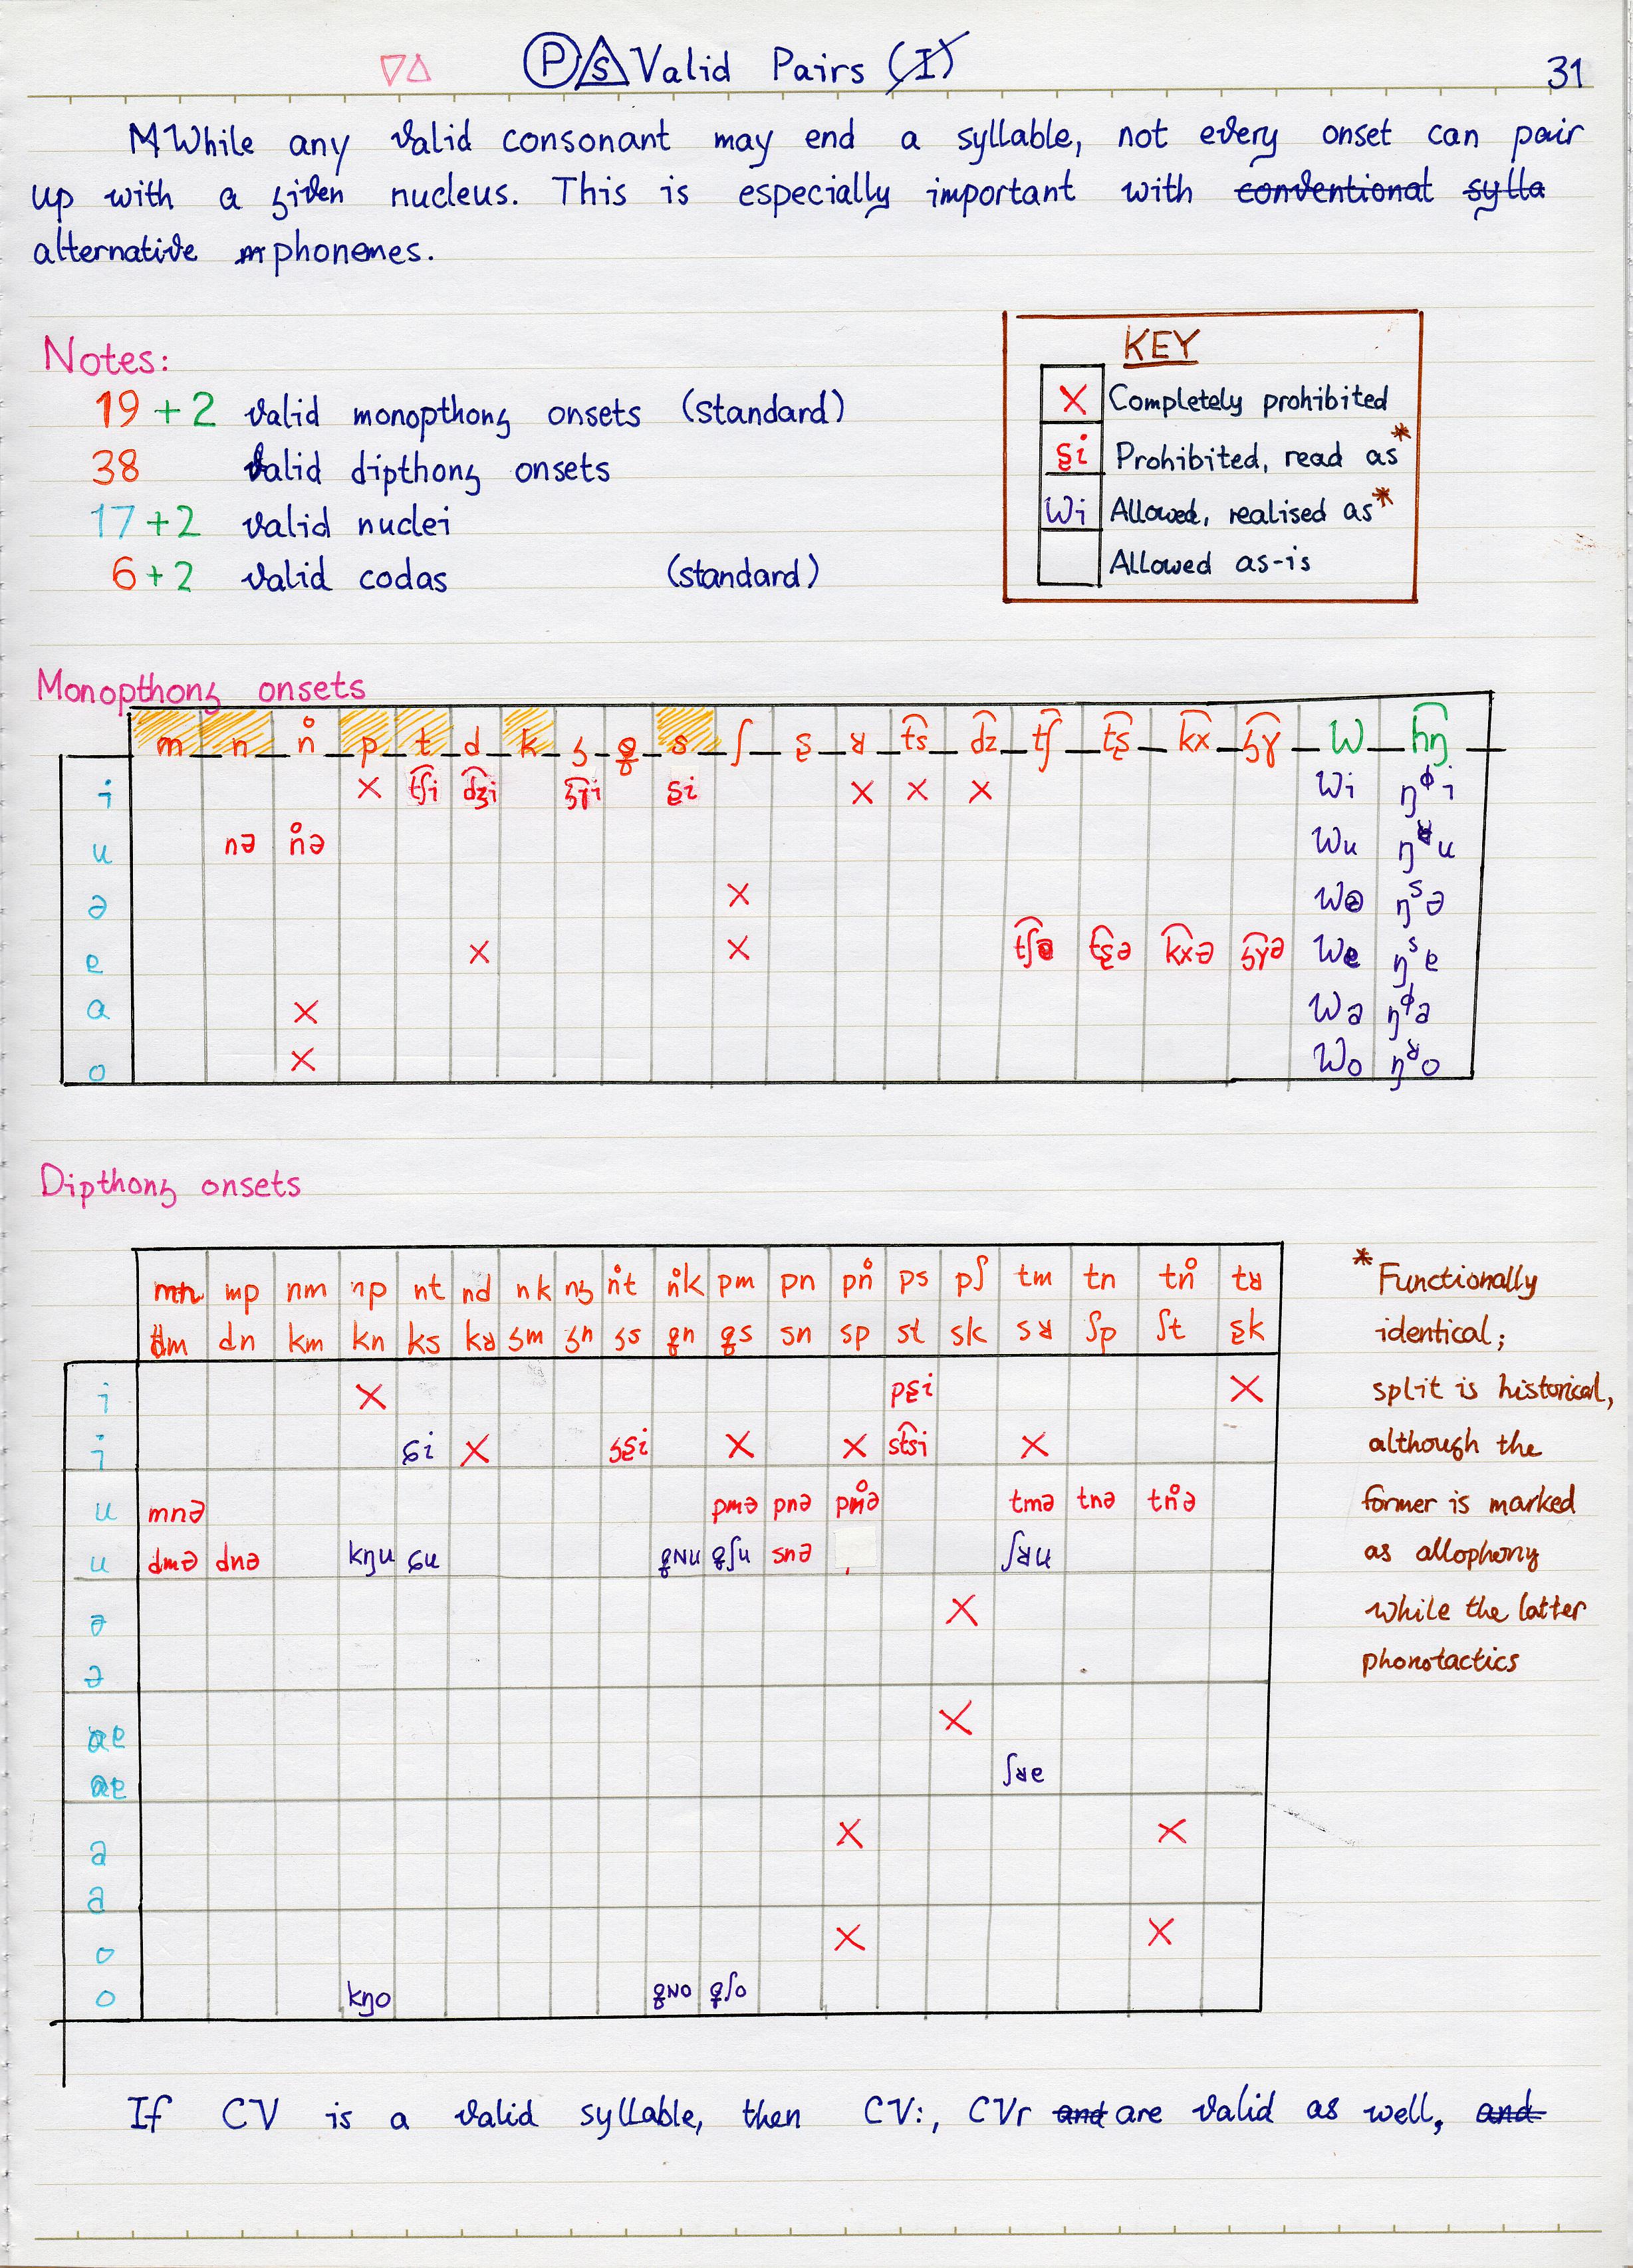 ▽△ Ⓟ Ⓢ Valid Pairs (I) 31
While any valid consonant may end a syllable, not every onset can pair
up with a given nucleus. This is especially important with conventional sylla
alternative phonemes.
Notes:
19 +2 valid monopthong onsets (standard)
38 valid dipthong onsets
17 +2 valid nuclei
6 +2 valid codas (standard)
KEY
× Completely prohibited
ʂi Prohibited, read as*
Wi Allowed, realised as*
Allowed as-is
Monopthong onsets
m n n̊ p t d k g s ʃ ʂ ʁ t͡s d͡z t͡ʃ t͡ʂ k͡x g͡ɣ W h͡ŋ
i × t͡ʃi d͡ʒi g͡ɣi ʂi × × × Wi ŋᶲi
u nə n̊ə Wu ŋʁu
ə × Wə ŋˢə
e × × t͡ʃə t͡ʂə k͡xə g͡ɣə We ŋˢe
a × Wa ŋᶲa
o × Wo ŋʁo
Dipthong onsets
mn mp nm np nt nd nk ng n̊t n̊k pm pn pn̊ ps pʃ tm tn tn̊ tʁ
dm dn km kn ks kʁ gm gn gs sn sp st sk sʁ ʃp ʃt ʂk
i × pʂi ×
i × gʂi × × st͡si ×
u mnə pmə pnə pn̊ə tmə tnə tn̊ə
u dmə dnə kŋu snə ʃʁu
ə ×
ə
e ×
e ʃʁe
a × ×
a
o × ×
o kŋo
* Functionally
identical;
split is historical,
although the
former is marked
as allophony
while the latter
phonotactics
If CV is a valid syllable, then CV:, CVr and are valid as well, and